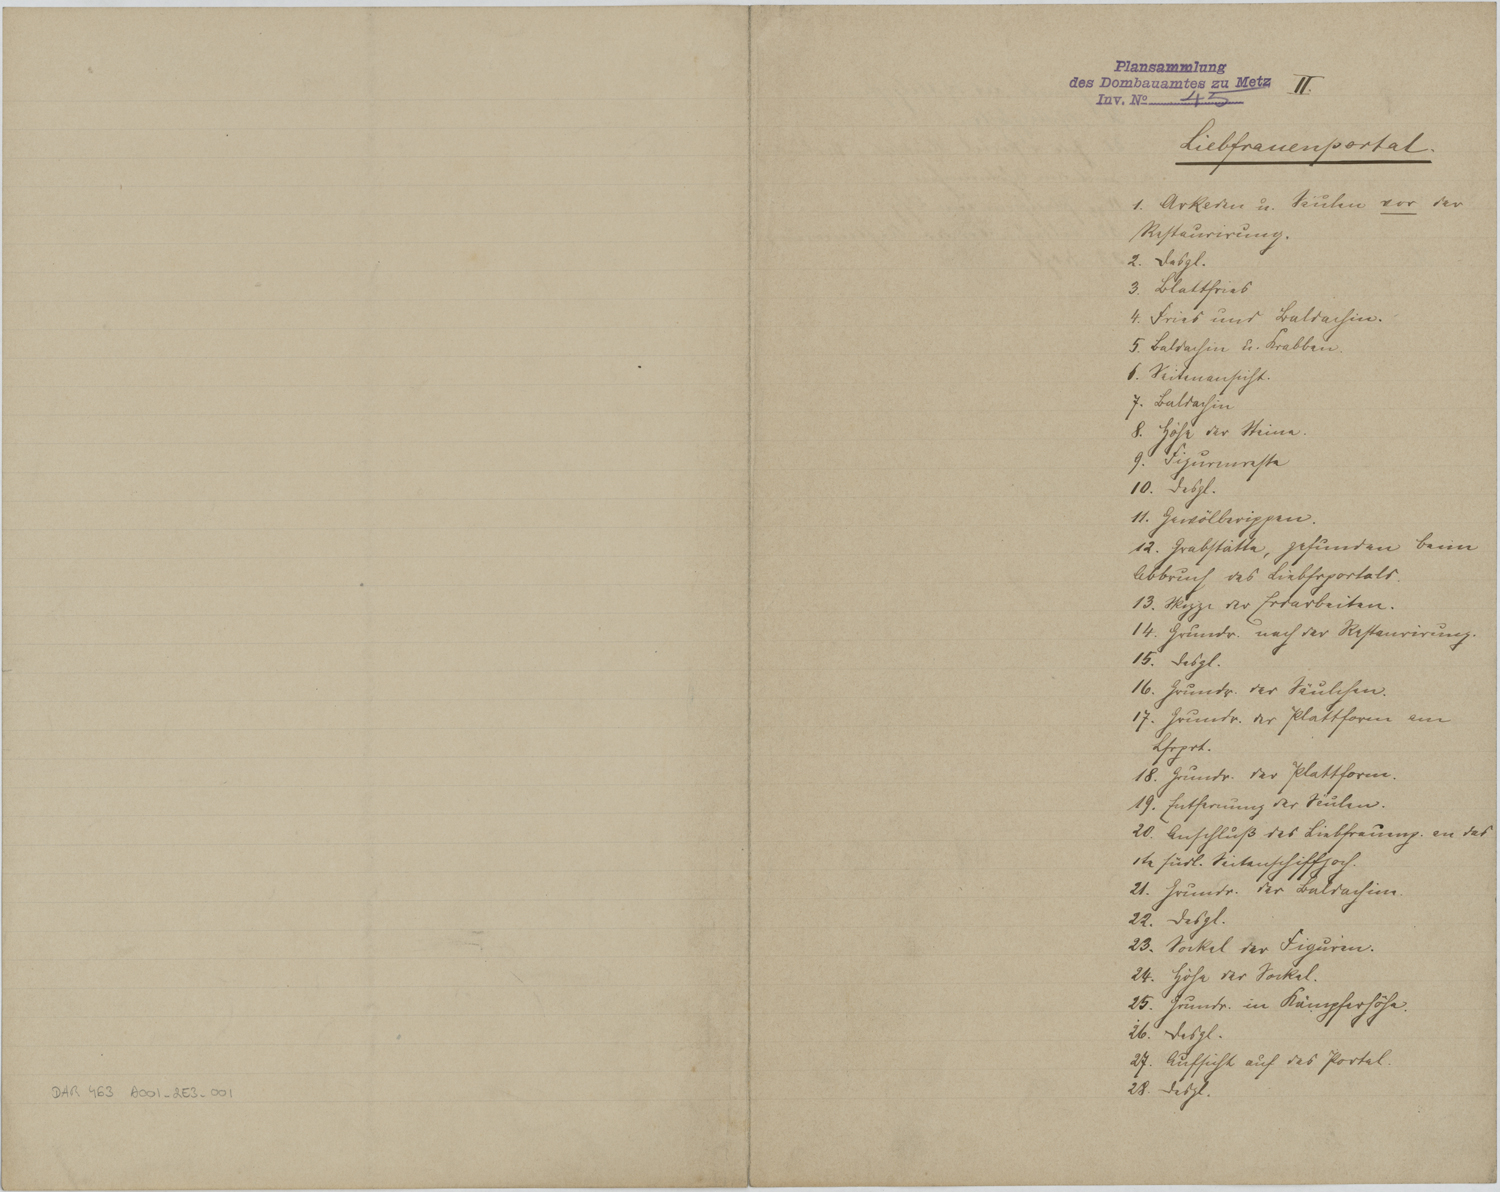 Plansammlung
des Dombauamtes zu Metz
Inv. No 45
II.
Liebfrauenportal.
1. Arkaden u. Säulen vor der
Restaurirung.
2. Desgl.
3. Blattfries
4. Fries und Baldachin.
5. Baldachin u. Krabben.
6. Seitenansicht.
7. Baldachin
8. Höhe der Steine.
9. Figurenreste
10. Desgl.
11. Gewölberippen.
12. Grabstätte, gefunden beim
Abbruch des Liebfrportals.
13. Skizze der Erdarbeiten.
14. Grundr. nach der Restaurirung.
15. Desgl.
16. Grundr. der Säulchen.
17. Grundr. der Plattform am
Lfrprt.
18. Grundr. der Plattform.
19. Entfernung der Säulen.
20. Anschluß des Liebfrauenp. an das
1te südl. Seitenschiffjoch.
21. Grundr. der Baldachine.
22. Desgl.
23. Sockel der Figuren.
24. Höhe der Sockel.
25. Grundr. in Kämpferhöhe.
26. Desgl.
27. Aufsicht auf das Portal.
28. Desgl.
DAR 463 A001_2E3_001